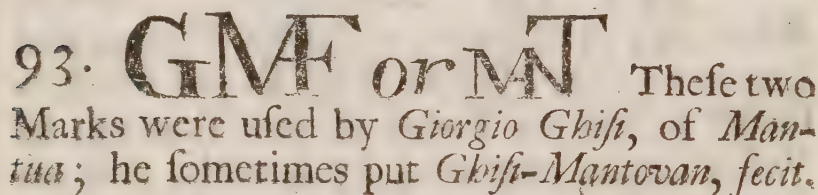 93. GMF or MANT Theſe two
Marks were uſed by Giorgio Ghiſi, of Man-
tua; he ſometimes put Ghiſi-Mantovan, fecit.